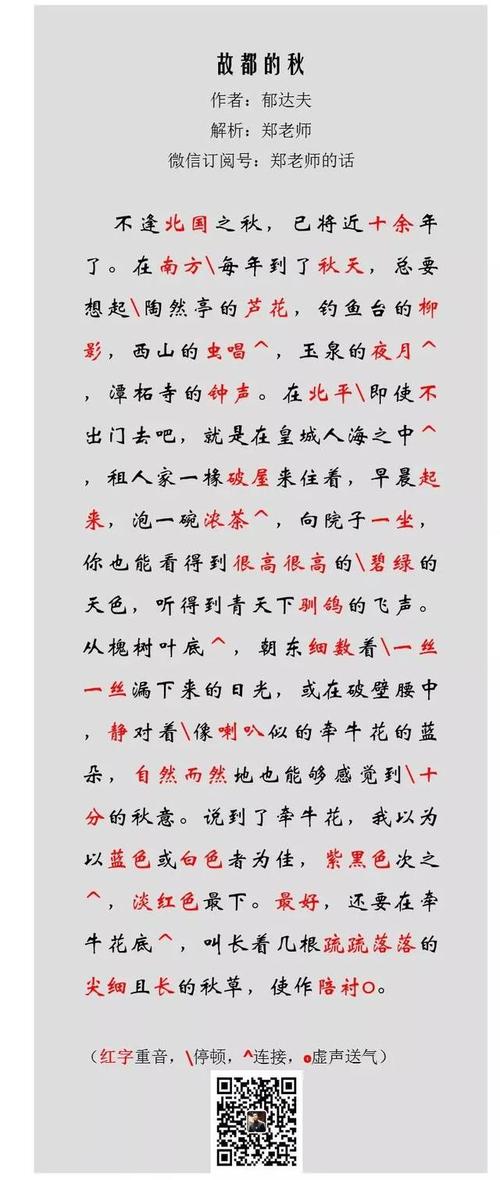 故都的秋
作者：郁达夫
解析：郑老师
微信订阅号：郑老师的话
不逢北国之秋，已将近十余年
了。在南方\每年到了秋天，总要
想起\陶然亭的芦花，钓鱼台的柳
影，西山的虫唱^，玉泉的夜月^
，潭柘寺的钟声。在北平\即使不
出门去吧，就是在皇城人海之中^
，租人家一椽破屋来住着，早晨起
来，泡一碗浓茶^，向院子一坐，
你也能看得到很高很高的\碧绿的
天色，听得到青天下驯鸽的飞声。
从槐树叶底^，朝东细数着\一丝
一丝漏下来的日光，或在破壁腰中
，静对着\像喇叭似的牵牛花的蓝
朵，自然而然地也能够感觉到\十
分的秋意。说到了牵牛花，我以为
以蓝色或白色者为佳，紫黑色次之
^，淡红色最下。最好，还要在牵
牛花底^，叫长着几根疏疏落落的
尖细且长的秋草，使作陪衬o。
（红字重音，\停顿，^连接，o虚声送气）